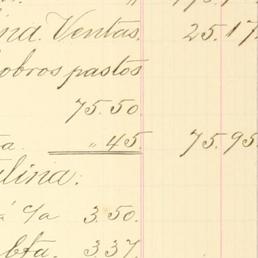 Ventas. 25.17
cobros pastos
75.50.
" 45. 75.95.
lina:
á c/a 3.50.
bta. 3.37.